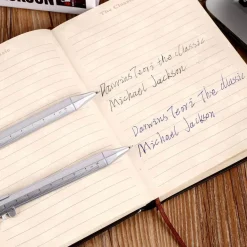 Darwins Teori the Classic
Michael Jackson
Darwins Teori The Classic
Michael Jackson